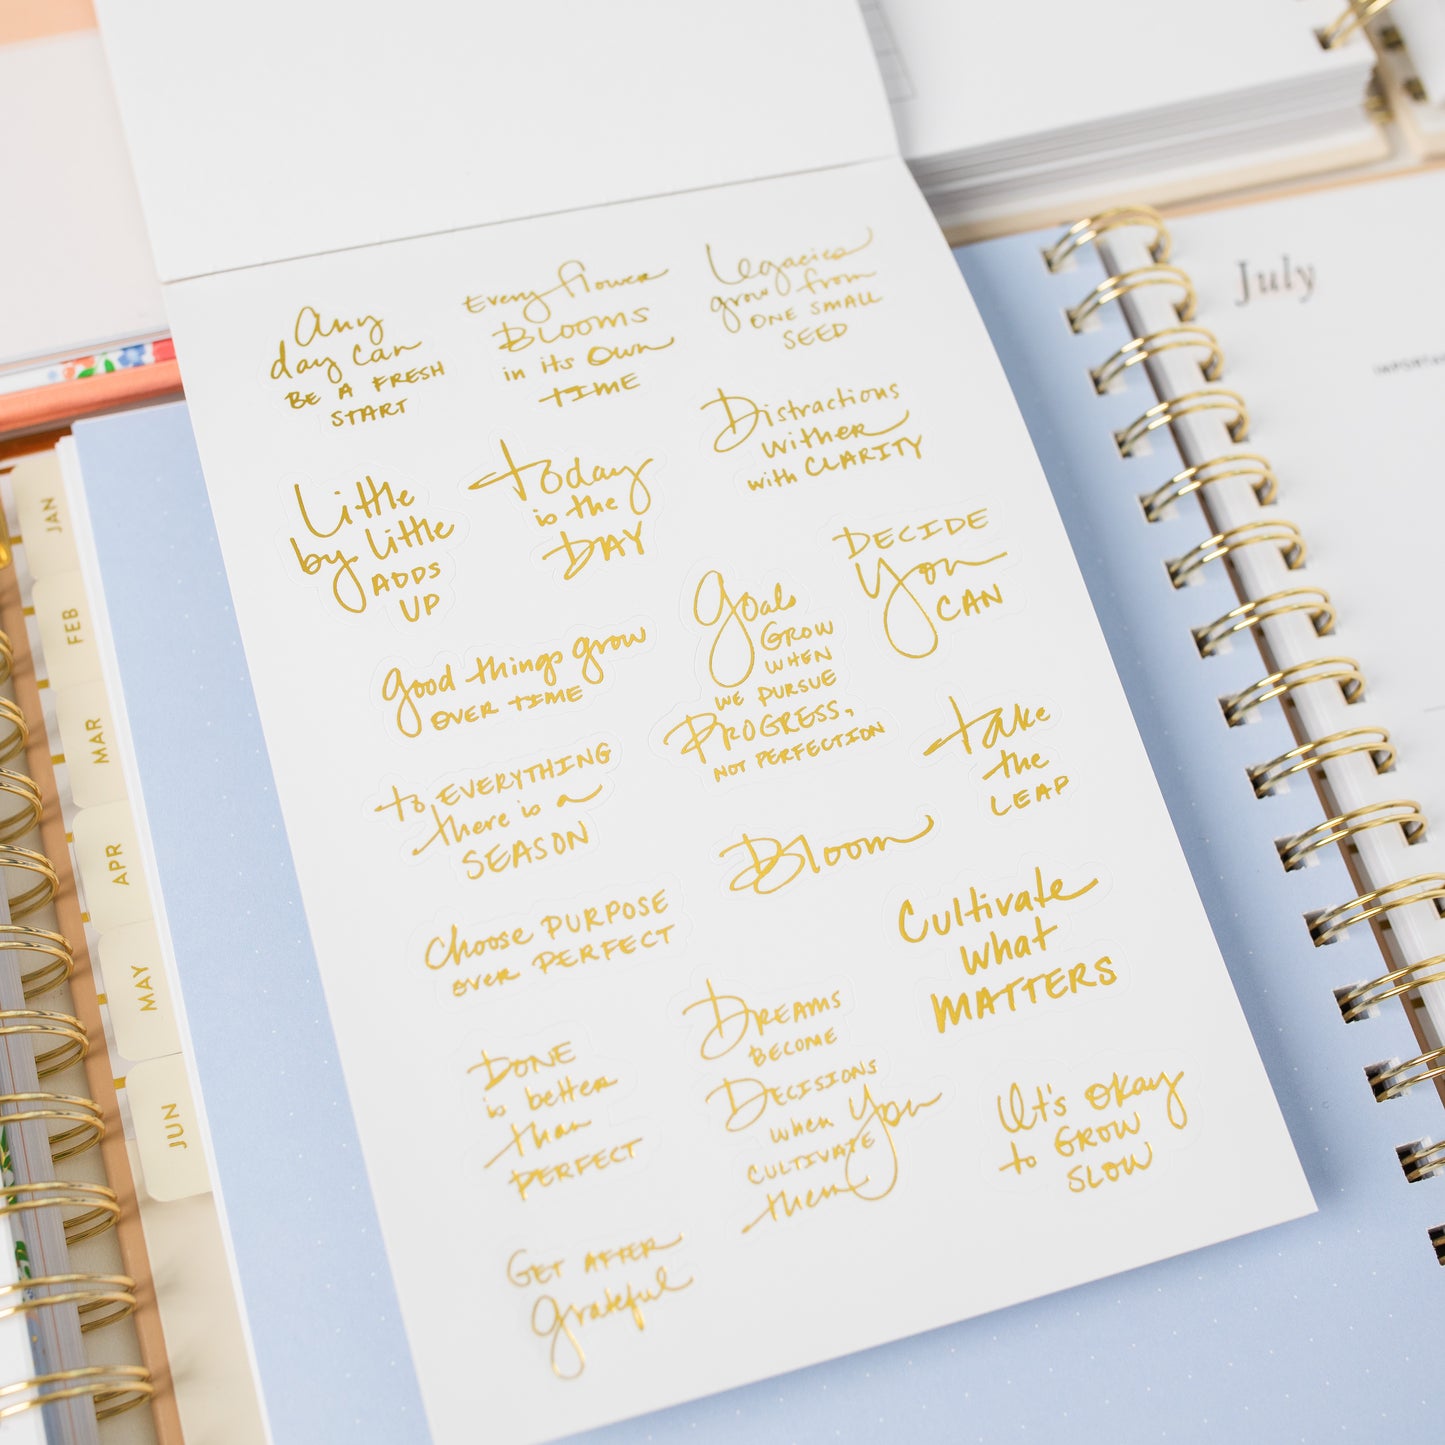 Any
day can
BE A FRESH
START
Every flower
BLOOMS
in its own
TIME
Legacies
grow from
ONE SMALL
SEED
Little
by little
ADDS
UP
today
is the
DAY
Distractions
wither
with CLARITY
DECIDE
You
CAN
good things grow
OVER TIME
goals
GROW
WHEN
WE PURSUE
PROGRESS,
NOT PERFECTION
take
the
LEAP
to EVERYTHING
there is a
SEASON
Bloom
Choose PURPOSE
over PERFECT
Cultivate
what
MATTERS
DONE
is better
than
PERFECT
DREAMS
BECOME
DECISIONS
when You
CULTIVATE
them
It's okay
to GROW
SLOW
GET AFTER
grateful
JAN
FEB
MAR
APR
MAY
JUN
July